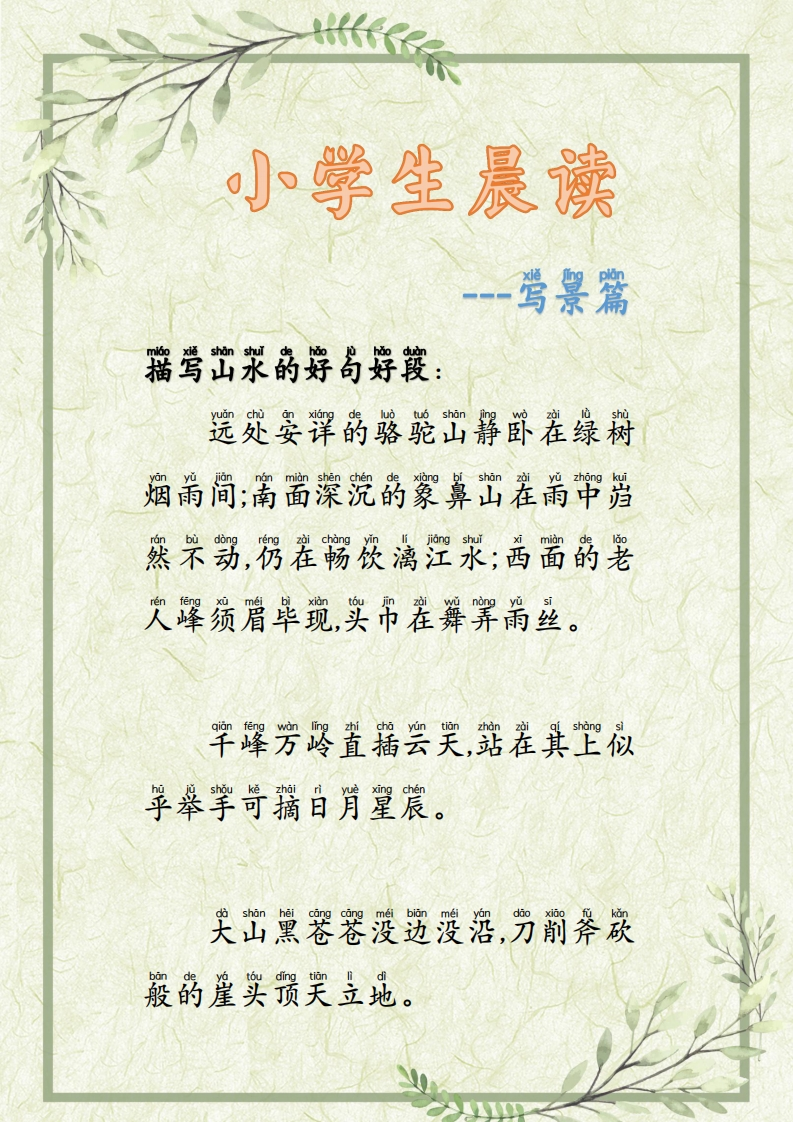 小学生晨读
xiě jǐng piān
---写景篇
miáo xiě shān shuǐ de hǎo jù hǎo duàn
描写山水的好句好段：
yuǎn chù ān xiáng de luò tuó shān jìng wò zài lǜ shù
远处安详的骆驼山静卧在绿树
yān yǔ jiān nán miàn shēn chén de xiàng bí shān zài yǔ zhōng kuī
烟雨间;南面深沉的象鼻山在雨中岿
rán bù dòng réng zài chàng yǐn lí jiāng shuǐ xī miàn de lǎo
然不动,仍在畅饮漓江水;西面的老
rén fēng xū méi bì xiàn tóu jīn zài wǔ nòng yǔ sī
人峰须眉毕现,头巾在舞弄雨丝。
qiān fēng wàn lǐng zhí chā yún tiān zhàn zài qí shàng sì
千峰万岭直插云天,站在其上似
hū jǔ shǒu kě zhāi rì yuè xīng chén
乎举手可摘日月星辰。
dà shān hēi cāng cāng méi biān méi yán dāo xiāo fǔ kǎn
大山黑苍苍没边没沿,刀削斧砍
bān de yá tóu dǐng tiān lì dì
般的崖头顶天立地。